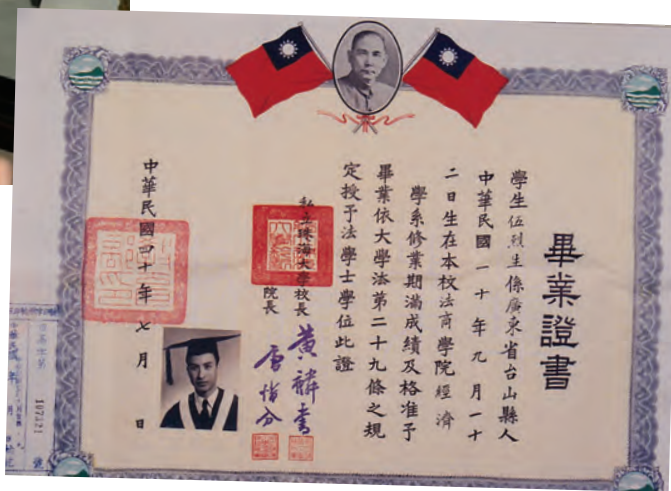 畢業證書
學生伍烈生係廣東省台山縣人
中華民國一十年九月一十
二日生在本校法商學院經濟
學系修業期滿成績及格准予
畢業依大學法第二十九條之規
定授予法學士學位此證
私立珠海大學校長
黃麟書
院長
中華民國四十年七月 日
107321
號